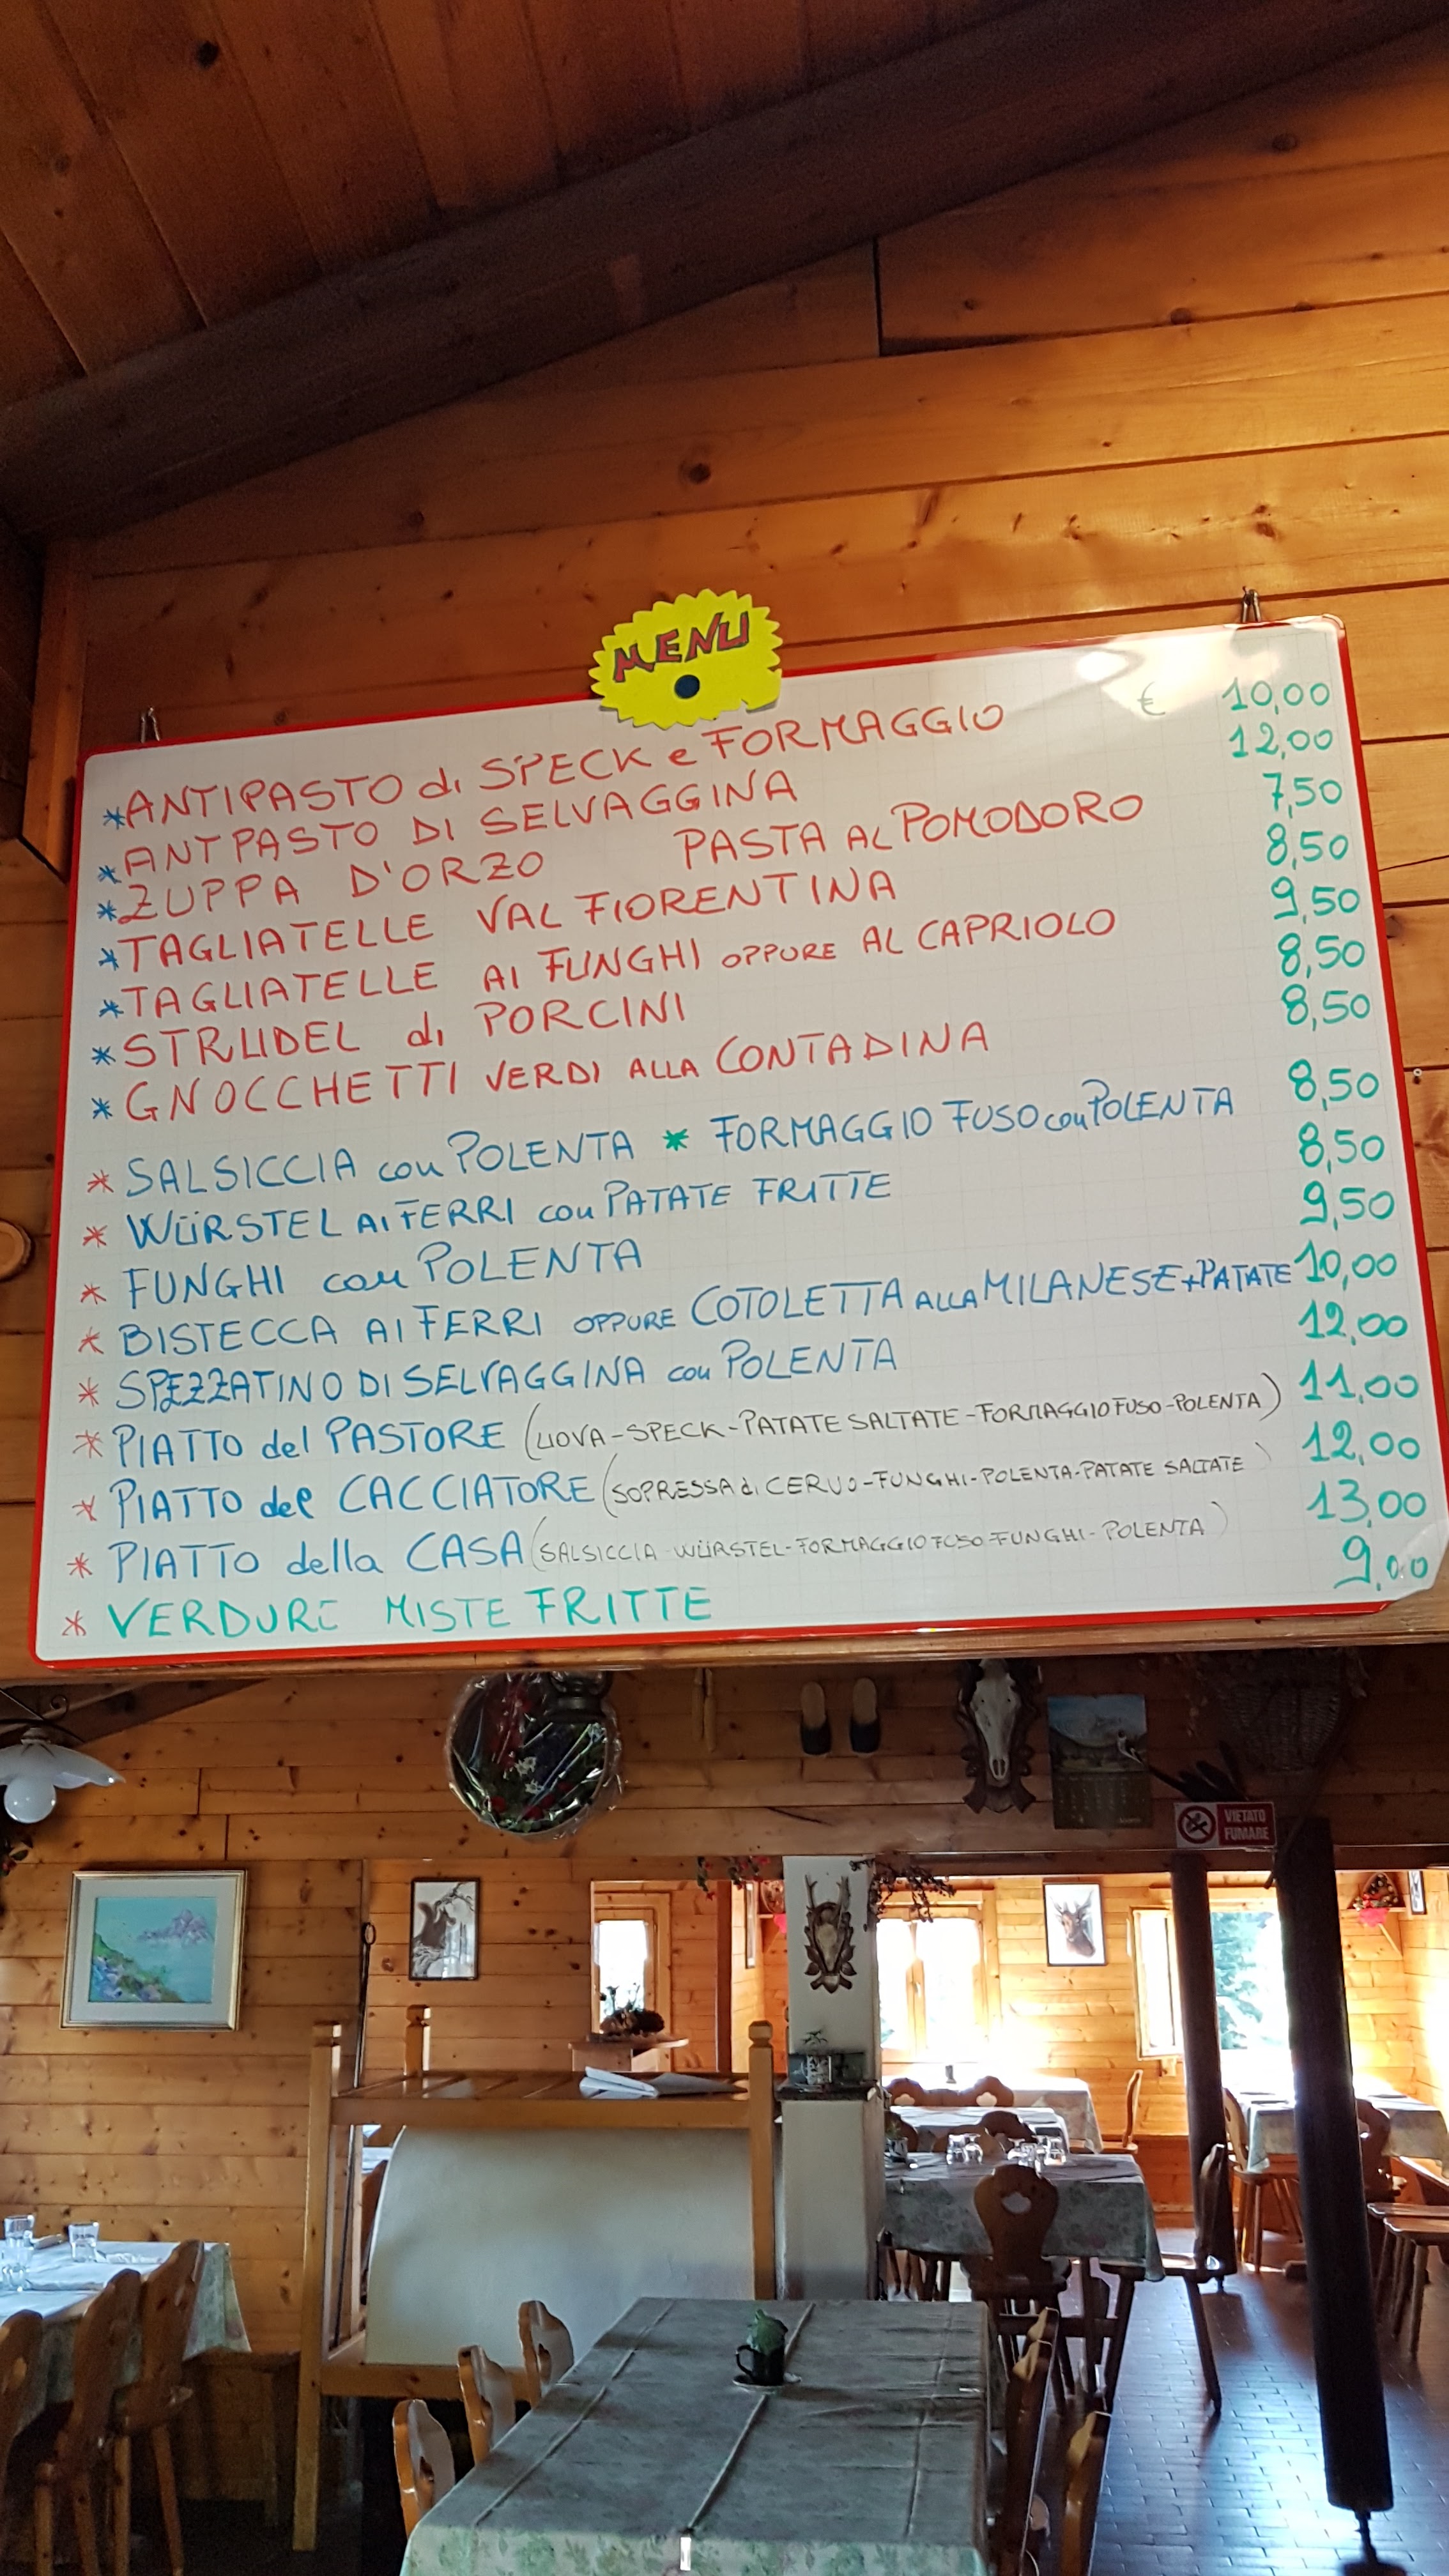 MENU
*ANTIPASTO di SPECK e FORMAGGIO € 10,00
*ANTPASTO DI SELVAGGINA 12,00
*ZUPPA D'ORZO PASTA AL POMODORO 7,50
*TAGLIATELLE VAL FIORENTINA 8,50
*TAGLIATELLE AI FUNGHI OPPURE AL CAPRIOLO 9,50
*STRUDEL di PORCINI 8,50
*GNOCCHETTI VERDI ALLA CONTADINA 8,50
* SALSICCIA con POLENTA * FORMAGGIO FUSO con POLENTA 8,50
* WÜRSTEL AI FERRI con PATATE FRITTE 8,50
* FUNGHI con POLENTA 9,50
* BISTECCA AI FERRI OPPURE COTOLETTA ALLA MILANESE+PATATE 10,00
* SPEZZATINO DI SELVAGGINA con POLENTA 12,00
* PIATTO del PASTORE (UOVA-SPECK-PATATE SALTATE-FORMAGGIO FUSO-POLENTA) 11,00
* PIATTO del CACCIATORE (SOPRESSA di CERVO-FUNGHI-POLENTA-PATATE SALTATE) 12,00
* PIATTO della CASA (SALSICCIA-WÜRSTEL-FORMAGGIO FUSO-FUNGHI-POLENTA) 13,00
* VERDURE MISTE FRITTE 9,00
VIETATO
FUMARE